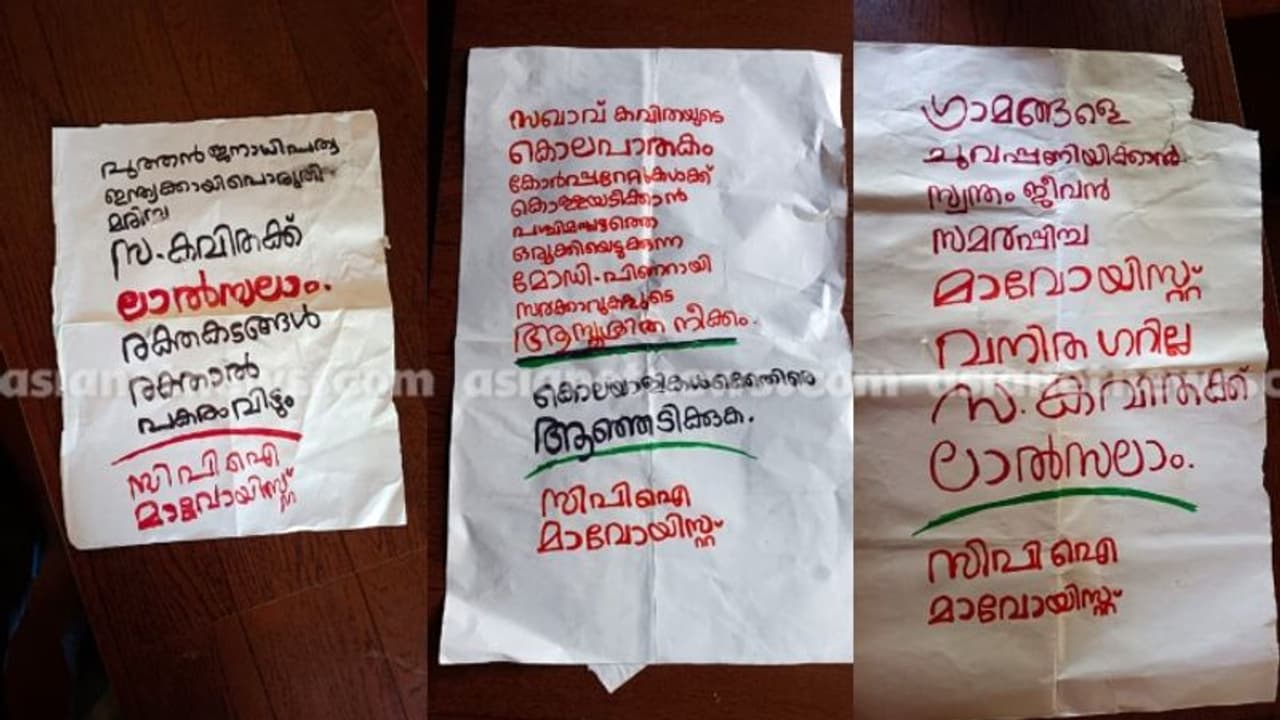 പുത്തൻ ജനാധിപത്യ
ഇന്ത്യക്കായി പൊരുതി
മരിച്ച
സ. കവിതക്ക്
ലാൽസലാം.
രക്തകടങ്ങൾ
രക്തത്താൽ
പകരം വീടും
സി പി ഐ
മാവോയിസ്റ്റ്
സഖാവ് കവിതയുടെ
കൊലപാതകം
കോർപ്പറേറ്റുകൾക്ക്
കൊള്ളയടിക്കാൻ
പശ്ചിമഘട്ടത്തെ
ഒരുക്കിയെടുക്കുന്ന
മോഡി - പിണറായി
സർക്കാരുകളുടെ
ആസൂത്രിത നീക്കം.
കൊലയാളികൾക്കെതിരെ
ആഞ്ഞടിക്കുക.
സിപിഐ
മാവോയിസ്റ്റ്
ഗ്രാമങ്ങളെ
ചുവപ്പണിയിക്കാൻ
സ്വന്തം ജീവൻ
സമർപ്പിച്ച
മാവോയിസ്റ്റ്
വനിത ഗറില്ല
സ. കവിതക്ക്
ലാൽസലാം.
സിപി ഐ
മാവോയിസ്റ്റ്
asianetnews.com asianetnews.com asianetnews.com